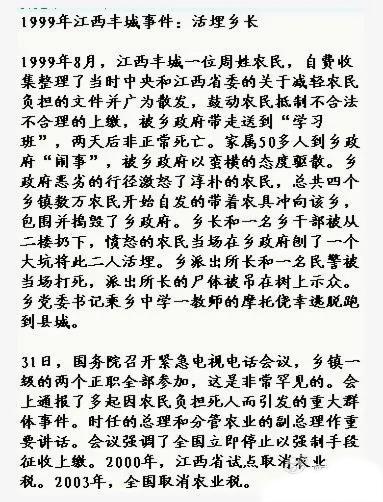 1999年江西丰城事件：活埋乡长
1999年8月，江西丰城一位周姓农民，自费收
集整理了当时中央和江西省委的关于减轻农民
负担的文件并广为散发，鼓动农民抵制不合法
不合理的上缴，被乡政府带走送到“学习
班”，两天后非正常死亡。家属50多人到乡政
府“闹事”，被乡政府以蛮横的态度驱散。乡
政府恶劣的行径激怒了淳朴的农民，总共四个
乡镇数万农民开始自发的带着农具冲向该乡，
包围并捣毁了乡政府。乡长和一名乡干部被从
二楼扔下，愤怒的农民当场在乡政府刨了一个
大坑将此二人活埋。乡派出所长和一名民警被
当场打死，派出所长的尸体被吊在树上示众。
乡党委书记乘乡中学一教师的摩托侥幸逃脱跑
到县城。
31日，国务院召开紧急电视电话会议，乡镇一
级的两个正职全部参加，这是非常罕见的。会
上通报了多起因农民负担死人而引发的重大群
体事件。时任的总理和分管农业的副总理作重
要讲话。会议强调了全国立即停止以强制手段
征收上缴。2000年，江西省试点取消农业
税。2003年，全国取消农业税。